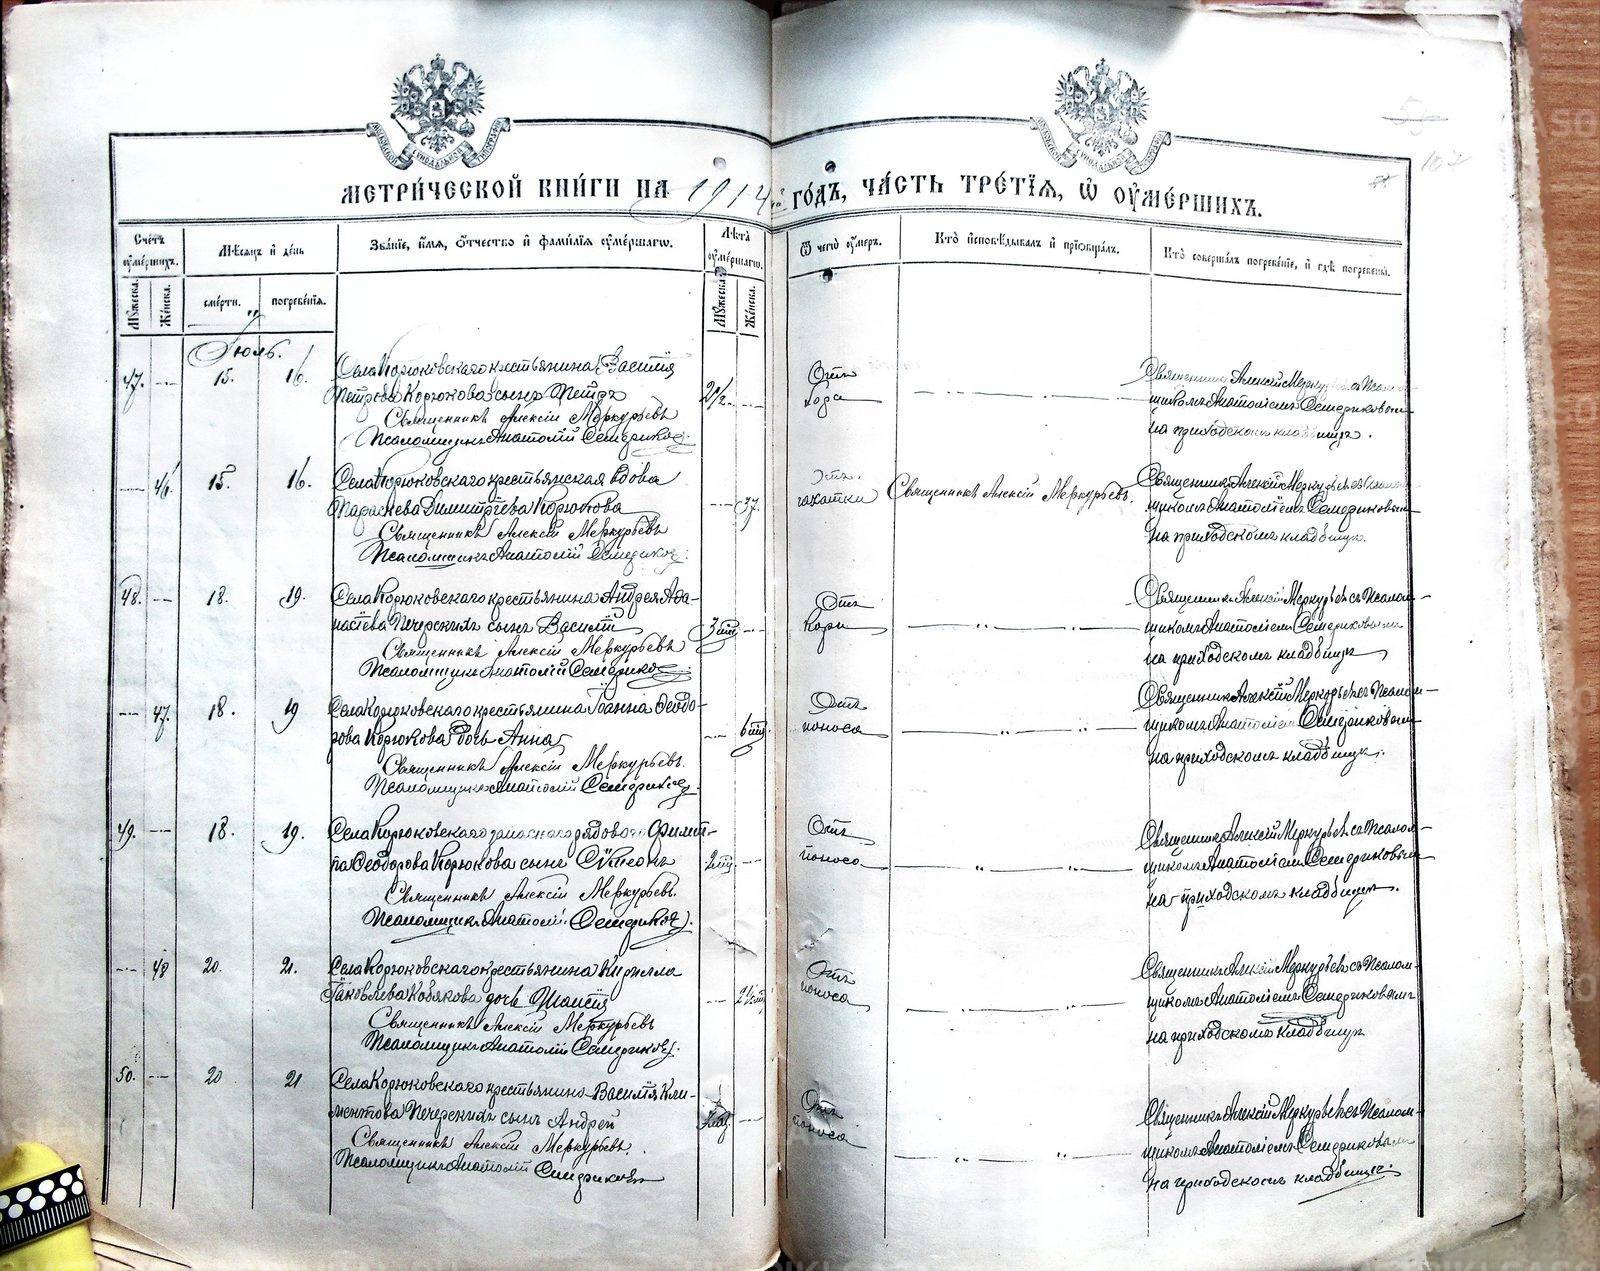 МЕТРИ́ЧЕСКОЙ КНИ́ГИ НА 1914й ГО́ДЪ, ЧА́СТЬ ТРЕ́ТІѦ, Ѿ ОУ҆МЕ́РШИХЪ.
102
Сче́тъ оу҆ме́ршихъ.
Мѣ́сяцъ и҆ де́нь
Зва́ніе, и҆́мя, ѻ҆́тчество и҆ фами́лія оу҆ме́ршагѡ.
Лѣ́та оу҆ме́ршагѡ.
Ѿ чегѡ̀ оу҆́меръ.
Кто̀ и҆сповѣ́дывалъ и҆ прїѡбща́лъ.
Кто̀ соверша́лъ погребе́ніе, и҆ гдѣ̀ погребены̀.
Мꙋ́жеска.
Же́нска.
сме́рти.
погребе́нія.
Мꙋ́жеска.
Же́нска.
Іюль.
47. 15. 16. Села Корюковскаго крестьянина Василія
Петрова Корюкова сынъ Петръ
Священникъ Алексій Меркурьевъ
Псаломщикъ Анатолій Семериковъ.
Отъ
Священникъ Алексій Меркурьевъ съ Псалом-
щикомъ Анатоліемъ Семериковымъ
на приходскомъ кладбищѣ.
46. 15. 16. Села Корюковскаго крестьянская вдова
Параскева Димитріева Корюкова 37.
Священникъ Алексій Меркурьевъ
Псаломщикъ Анатолій Семериковъ.
Отъ
чахотки
Священникъ Алексій Меркурьевъ.
Священникъ Алексій Меркурьевъ съ Псалом-
щикомъ Анатоліемъ Семериковымъ
на приходскомъ кладбищѣ.
48. 18. 19. Села Корюковскаго крестьянина Андрея Аѳа-
насіева Печерскихъ сынъ Василій
Священникъ Алексій Меркурьевъ
Псаломщикъ Анатолій Семериковъ
Отъ
кори
Священникъ Алексій Меркурьевъ съ Псалом-
щикомъ Анатоліемъ Семериковымъ
на приходскомъ кладбищѣ
47. 18. 19 Села Корюковскаго крестьянина Іоанна Ѳеодо-
рова Корюкова дочь Анна
Священникъ Алексій Меркурьевъ.
Псаломщикъ Анатолій Семериковъ.
Отъ
поноса
Священникъ Алексій Меркурьевъ съ Псалом-
щикомъ Анатоліемъ Семериковымъ
на приходскомъ кладбищѣ.
49. 18. 19. Села Корюковскаго запаснаго рядового Филип-
па Ѳеодорова Корюкова сынъ Сѵмеонъ
Священникъ Алексій Меркурьевъ.
Псаломщикъ Анатолій Семериковъ.
Отъ
поноса
Священникъ Алексій Меркурьевъ съ Псалом-
щикомъ Анатоліемъ Семериковымъ
на приходскомъ кладбищѣ.
48 20. 21. Села Корюковскаго крестьянина Кирилла
Іаковлева Кобякова дочь Таисія
Священникъ Алексій Меркурьевъ
Псаломщикъ Анатолій Семериковъ.
Отъ
поноса
Священникъ Алексій Меркурьевъ съ Псалом-
щикомъ Анатоліемъ Семериковымъ
на приходскомъ кладбищѣ
50. 20 21 Села Корюковскаго крестьянина Василія Кли-
ментова Печерскихъ сынъ Андрей
Священникъ Алексій Меркурьевъ.
Псаломщикъ Анатолій Семериковъ
Отъ
поноса
Священникъ Алексій Меркурьевъ съ Псалом-
щикомъ Анатоліемъ Семериковымъ
на приходскомъ кладбищѣ.